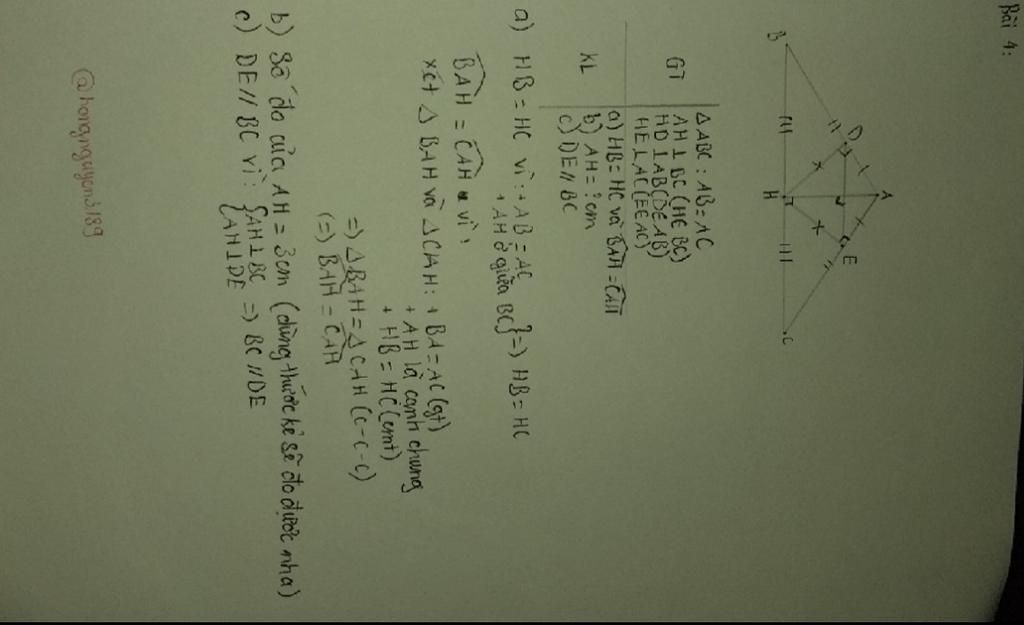 Bài 4:
A
D
E
B
H
C
GT
△ABC : AB = AC
AH ⊥ BC (H∈ BC)
HD ⊥ AB (D∈ AB)
HE ⊥ AC (E∈ AC)
KL
a) HB = HC và BAH = CAH
b) AH = ? cm
c) DE // BC
a) HB = HC vì: + AB = AC
+ AH ở giữa BC} => HB = HC
BAH = CAH vì:
xét △ BAH và △ CAH: + BA = AC (gt)
+ AH là cạnh chung
+ HB = HC (cmt)
=> △BAH = △CAH (c-c-c)
(=) BAH = CAH
b) Số đo của AH = 3cm (dùng thước kẻ sẽ đo được nha)
c) DE // BC vì: {AH⊥BC
{AH⊥DE => BC // DE
@hongnguyen3189